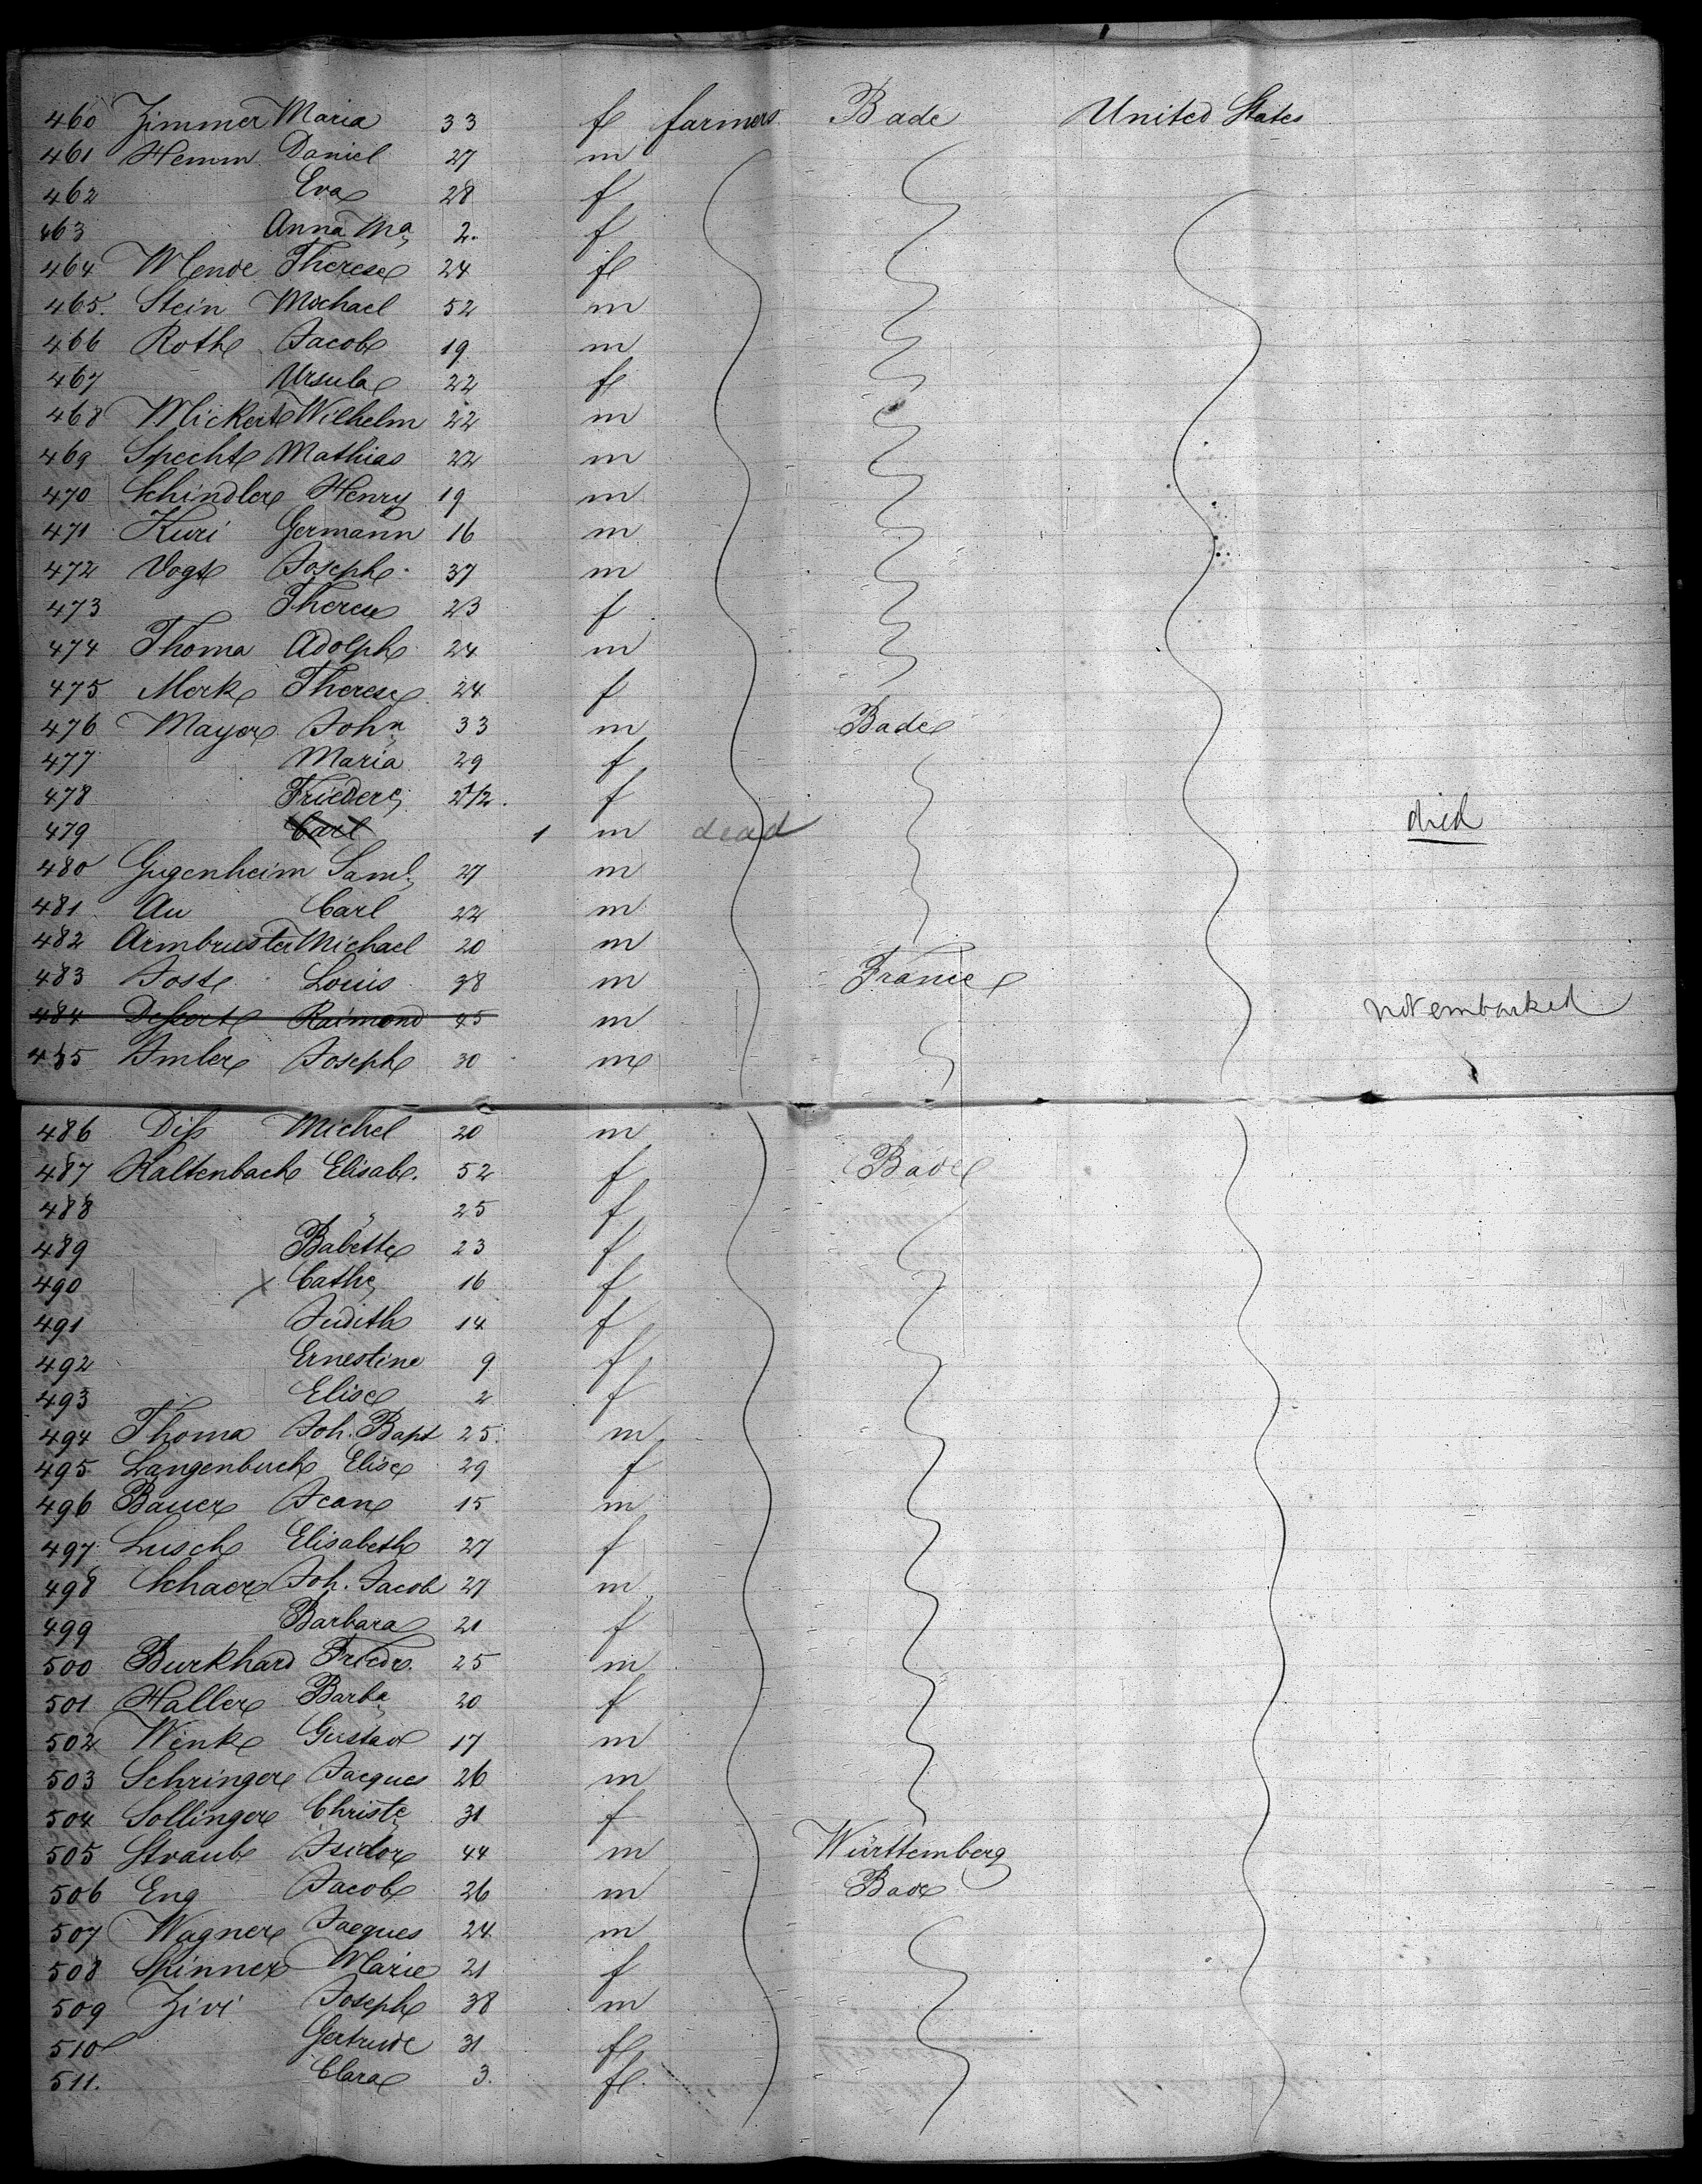 460 Zimmer Maria 33 f farmers Bade United States
461 Hemm Daniel 27 m
462 Eva 28 f
463 Anna Ma 2. f
464 Mende Therese 24 f
465. Stein Michael 52 m
466 Roth Jacob 19 m
467 Ursula 22 f
468 Mickert Wilhelm 22 m
469 Specht Mathias 22 m
470 Schindler Henry 19 m
471 Kuri Germann 16 m
472 Vogt Joseph 37 m
473 Therese 23 f
474 Thoma Adolph 24 m
475 Merk Therese 24 f
476 Mayer John 33 m Bade
477 Maria 29 f
478 Friedere 2 1/2. f
479 Carl 1 m dead died
480 Gugenheim Saml. 27 m
481 Au Carl 22 m
482 Armbruster Michael 20 m
483 Jost Louis 38 m France
484 Raimond 45 m not embarked
485 Imber Joseph 30 m
486 Diss Michel 20 m
487 Kaltenbach Elisab. 52 f Bade
488 " 25 f
489 Babette 23 f
490 x Cathe 16 f
491 Judith 14 f
492 Ernestine 9 f
493 Elise 2 f
494 Thoma Joh. Bapt 25. m
495 Langenbuch Elise 29 f
496 Bauer Jean 15 m
497 Lusch Elisabeth 27 f
498 Schaer Joh. Jacob 27 m
499 Barbara 21 f
500 Burkhard Friedr. 25 m
501 Haller Barba 20 f
502 Wenk Gustav 17 m
503 Schringer Jacques 26 m
504 Sollinger Christe 31 f
505 Straub Isidor 44 m Württemberg
506 Eng Jacob 26 m Bade
507 Wagner Jacques 24 m
508 Spinner Marie 21 f
509 Zivi Joseph 38 m
510 Gertrude 31 f
511. Clara 3. f